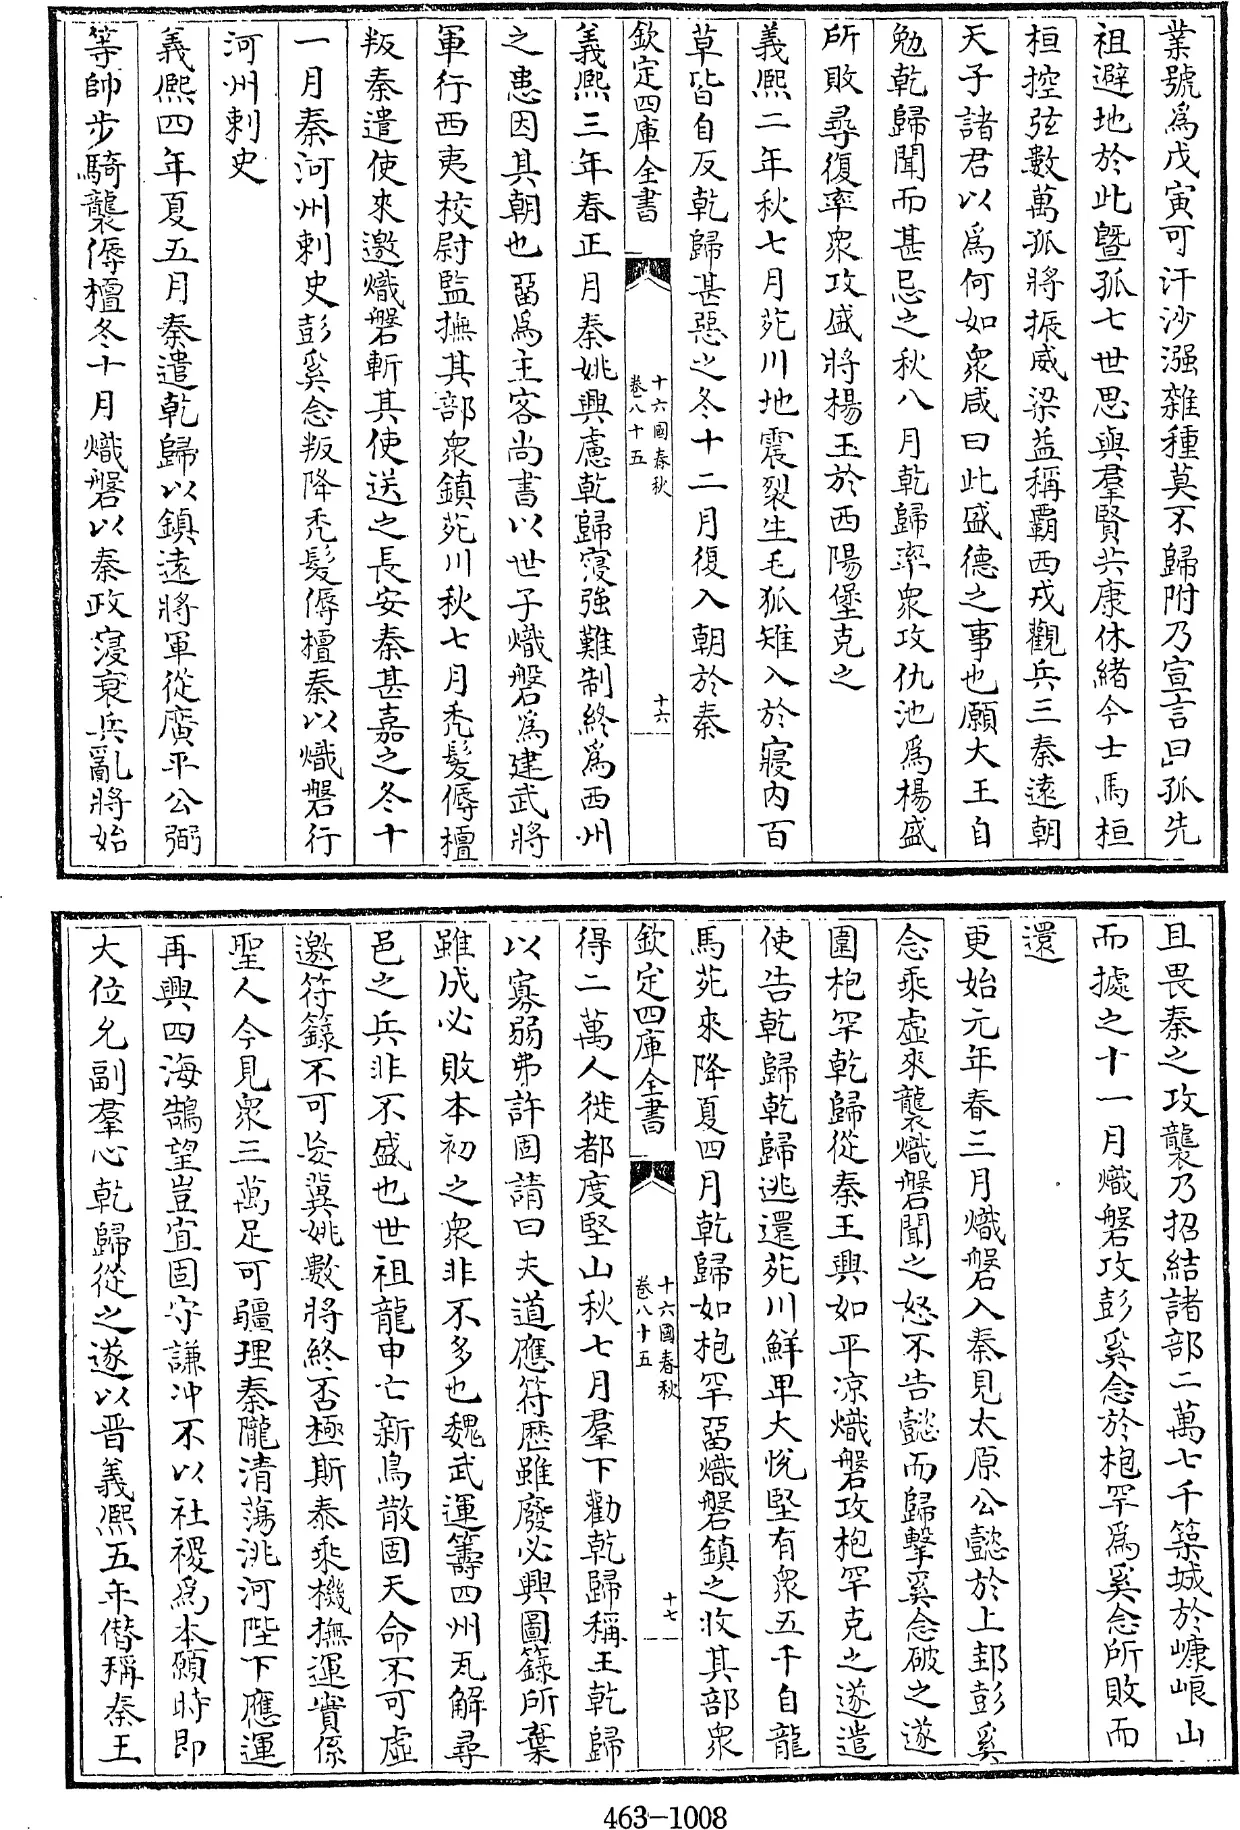 業號為戊寅可汗沙漒雜種莫不歸附乃宣言曰孤先
祖避地於此暨孤七世思與羣賢共康休緒今士馬桓
桓控弦數萬孤將振威梁益稱霸西戎觀兵三秦遠朝
天子諸君以為何如衆咸曰此盛德之事也願大王自
勉乾歸聞而甚忌之秋八月乾歸率衆攻仇池為楊盛
所敗尋復率衆攻盛將楊玉於西陽堡克之
義熙二年秋七月苑川地震裂生毛狐雉入於寢内百
草皆自反乾歸甚惡之冬十二月復入朝於秦
欽定四庫全書
十六國春秋
卷八十五
十六
義熙三年春正月秦姚興慮乾歸寖強難制終為西州
之患因其朝也畱為主客尚書以世子熾磐為建武將
軍行西夷校尉監撫其部衆鎮苑川秋七月禿髮傉檀
叛秦遣使來邀熾磐斬其使送之長安秦甚嘉之冬十
一月秦河州刺史彭奚念叛降禿髮傉檀秦以熾磐行
河州刺史
義熙四年夏五月秦遣乾歸以鎮遠將軍從廣平公弼
等帥步騎襲傉檀冬十月熾磐以秦政寖衰兵亂將始
且畏秦之攻襲乃招結諸部二萬七千築城於嵻崀山
而據之十一月熾磐攻彭奚念於枹罕為奚念所敗而
還
更始元年春三月熾磐入秦見太原公懿於上邽彭奚
念乘虛來襲熾磐聞之怒不告懿而歸擊奚念破之遂
圍枹罕乾歸從秦王興如平凉熾磐攻枹罕克之遂遣
使告乾歸乾歸逃還苑川鮮卑大悅堅有衆五千自龍
馬苑來降夏四月乾歸如枹罕畱熾磐鎮之收其部衆
欽定四庫全書
十六國春秋
卷八十五
十七
得二萬人徙都度堅山秋七月羣下勸乾歸稱王乾歸
以寡弱弗許固請曰夫道應符歷雖廢必興圖籙所棄
雖成必敗本初之衆非不多也魏武運籌四州瓦解尋
邑之兵非不盛也世祖龍申亡新鳥散固天命不可虛
邀符籙不可妄冀姚數將終否極斯泰乘機撫運實係
聖人今見衆三萬足可疆理秦隴清蕩洮河陛下應運
再興四海鵠望豈宜固守謙沖不以社稷為本願時即
大位允副羣心乾歸從之遂以晉義熙五年僭稱秦王
463-1008